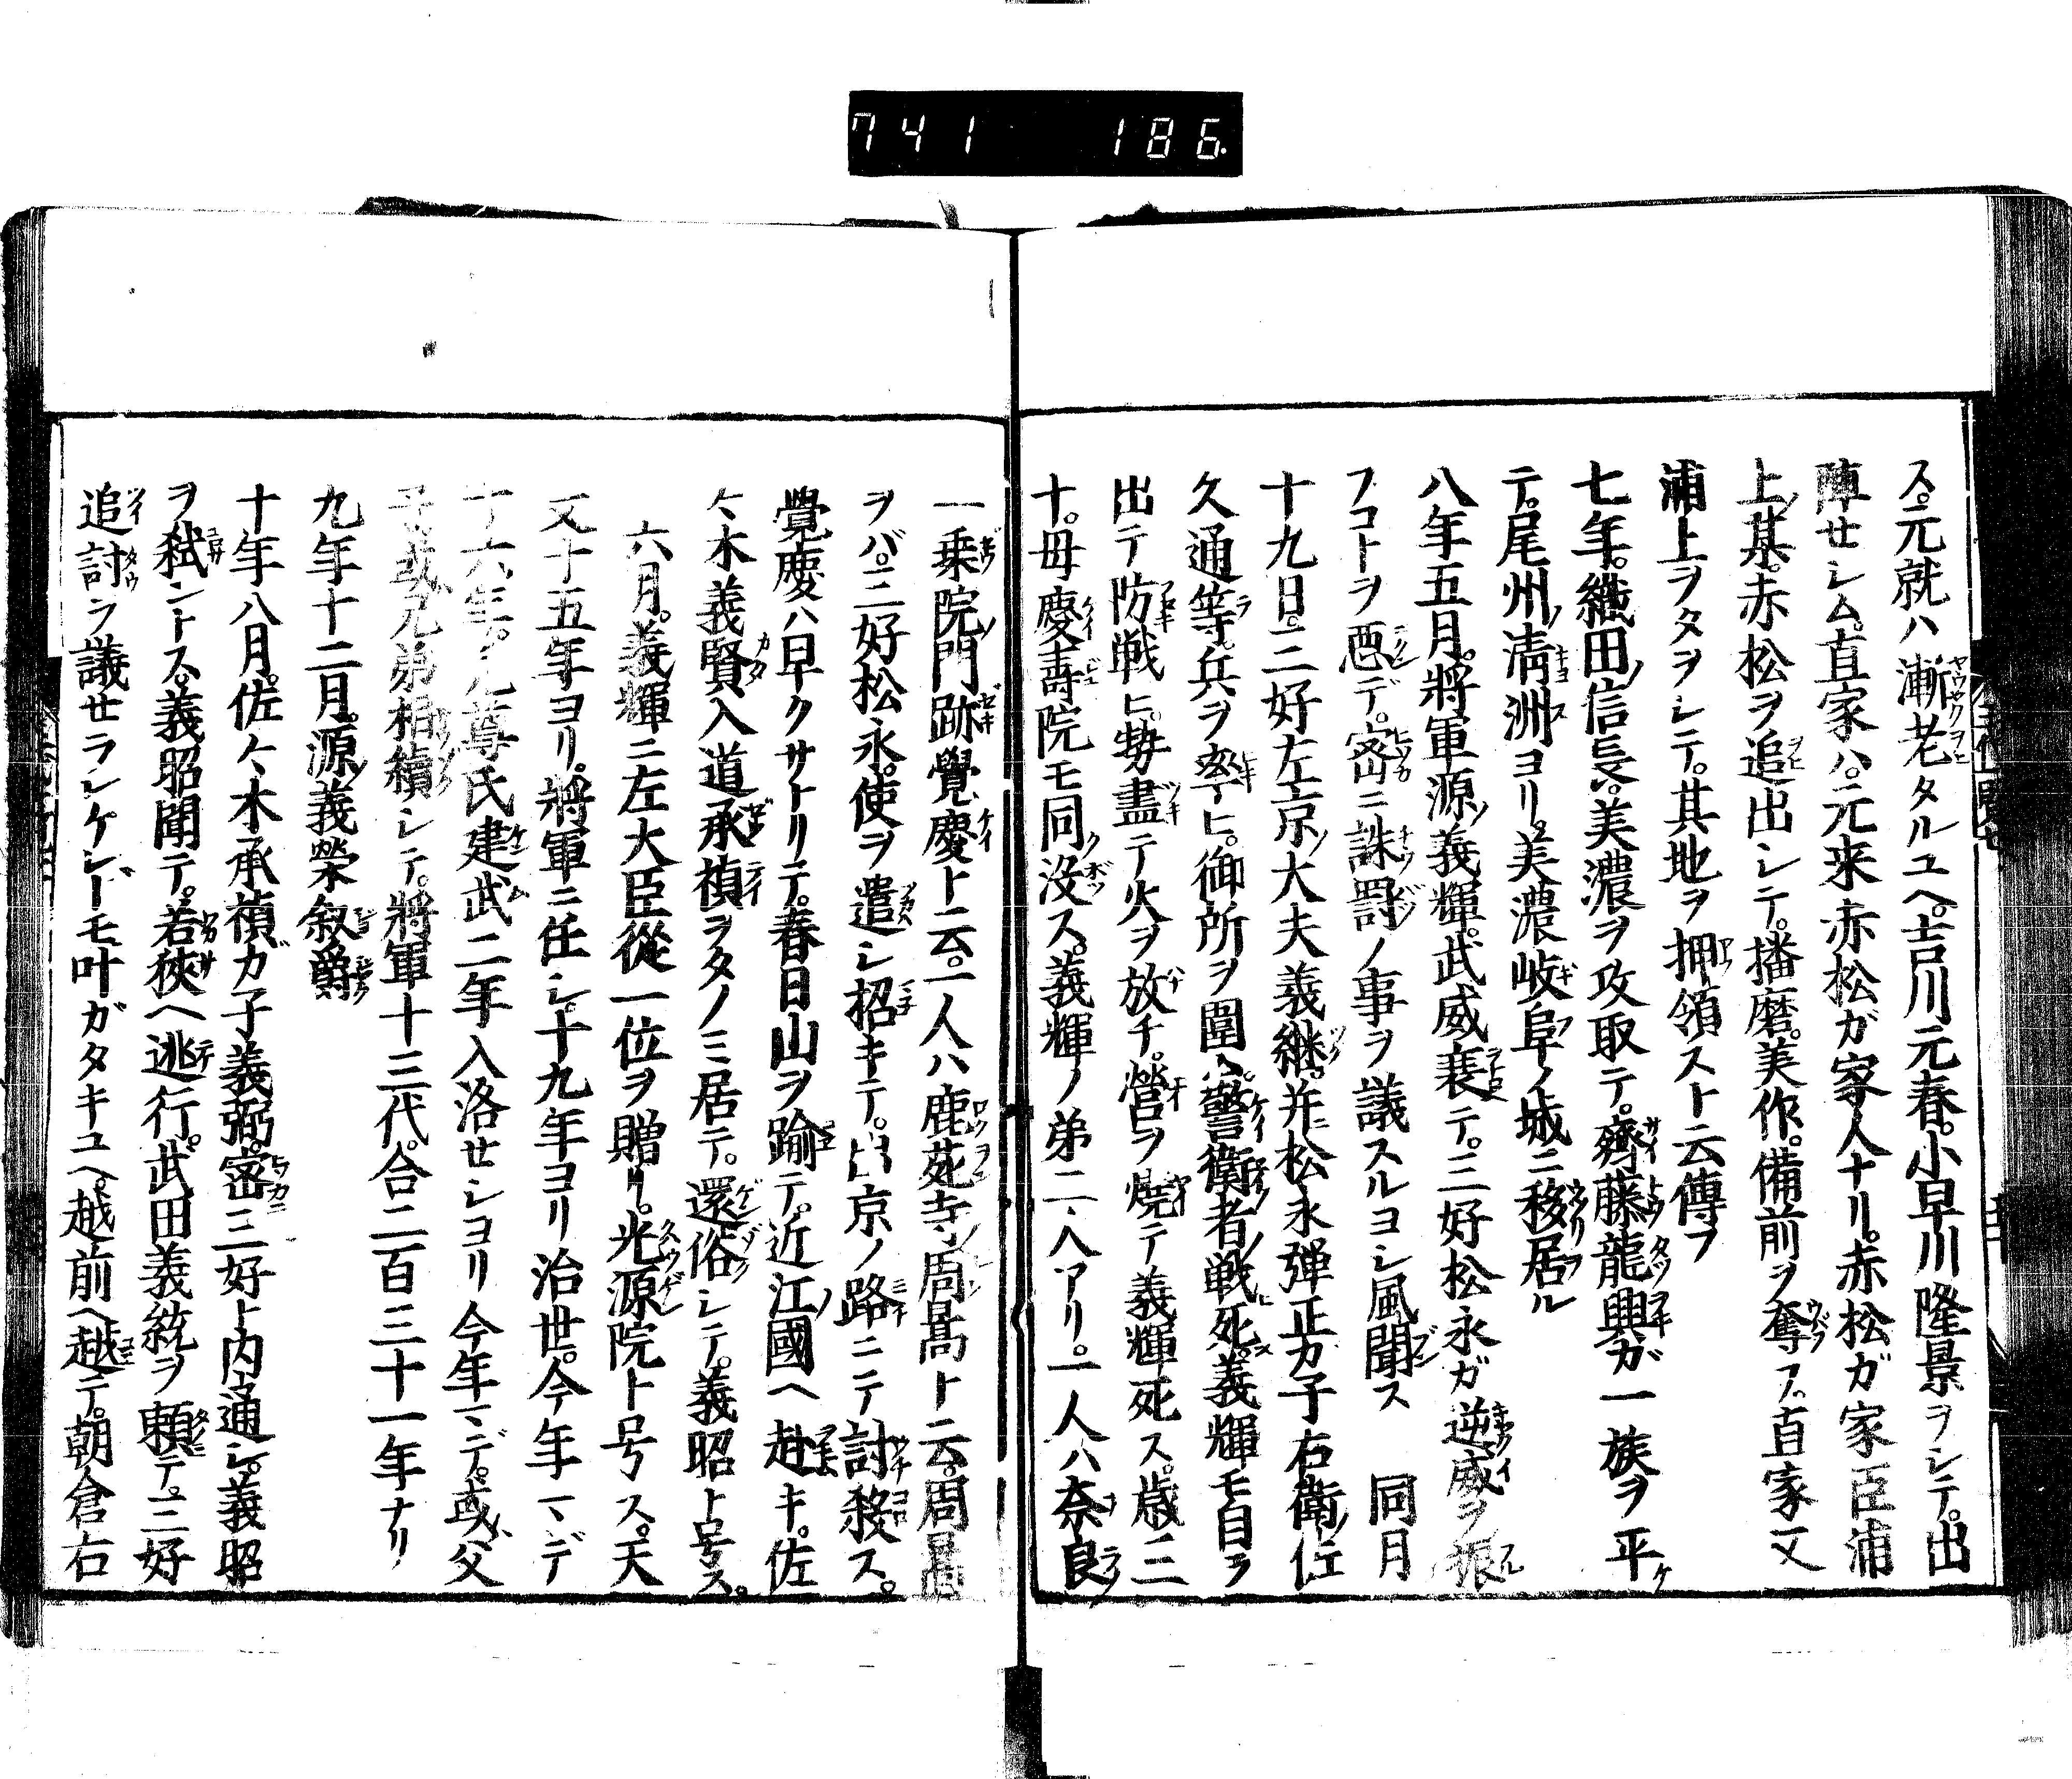 741 186
ス。元就ハ漸老タルユヘ。吉川元春。小早川隆景ヲシテ。出
陣セシム。直家ハ。元来赤松ガ家人ナリ。赤松ガ家臣浦
上某。赤松ヲ追出シテ。播磨。美作。備前ヲ奪フ。直家又
浦上ヲタヲシテ。其地ヲ押領スト云傳フ
七年。織田信長。美濃ヲ攻取テ。齋藤龍興ガ一族ヲ平
テ。尾州清洲ヨリ。美濃岐阜ノ城ニ移居ル
八年五月。將軍源義輝。武威衰テ。三好松永ガ逆威ヲ振
フコトヲ惡デ。密ニ誅罸ノ事ヲ議スルヨシ風聞ス 同月
十九日。三好左京大夫義継。并松永弾正カ子右衛门佐
久通等。兵ヲ率ヒ。御所ヲ圍ム。警衛者戦死ス。義輝モ自ラ
出テ防戦ヒ。勢盡テ火ヲ放チ。營ヲ焼テ義輝死ス。歳三
十。母慶壽院モ同没ス。義輝ノ弟二人アリ。一人ハ奈良
一乗院門跡覺慶ト云。一人ハ鹿苑寺周暠ト云。周暠
ヲバ。三好松永。使ヲ遣シ招キテ。出京ノ路ニテ討殺ス。
覺慶ハ早クサトリテ。春日山ヲ踰テ。近江國ヘ赴キ。佐
々木義賢入道承禎ヲタノミ居テ。還俗シテ。義昭ト号ス。
六月。義輝ニ左大臣從一位ヲ贈リ。光源院ト号ス。天
文十五年ヨリ。將軍ニ任シ。十九年ヨリ治世。今年マデ
十六年。凡尊氏建武二年入洛セシヨリ今年マデ。或ハ父
子。或ハ兄弟相續シテ。將軍十三代。合二百三十一年ナリ
九年十二月。源義榮叙爵
十年八月。佐々木承禎ガ子義弼。密ニ三好ト内通シ。義昭
ヲ弑ントス。義昭聞テ。若狹ヘ逃行。武田義統ヲ頼テ。三好
追討ヲ議セラレケレドモ叶ガタキユヘ。越前ヘ越テ。朝倉右